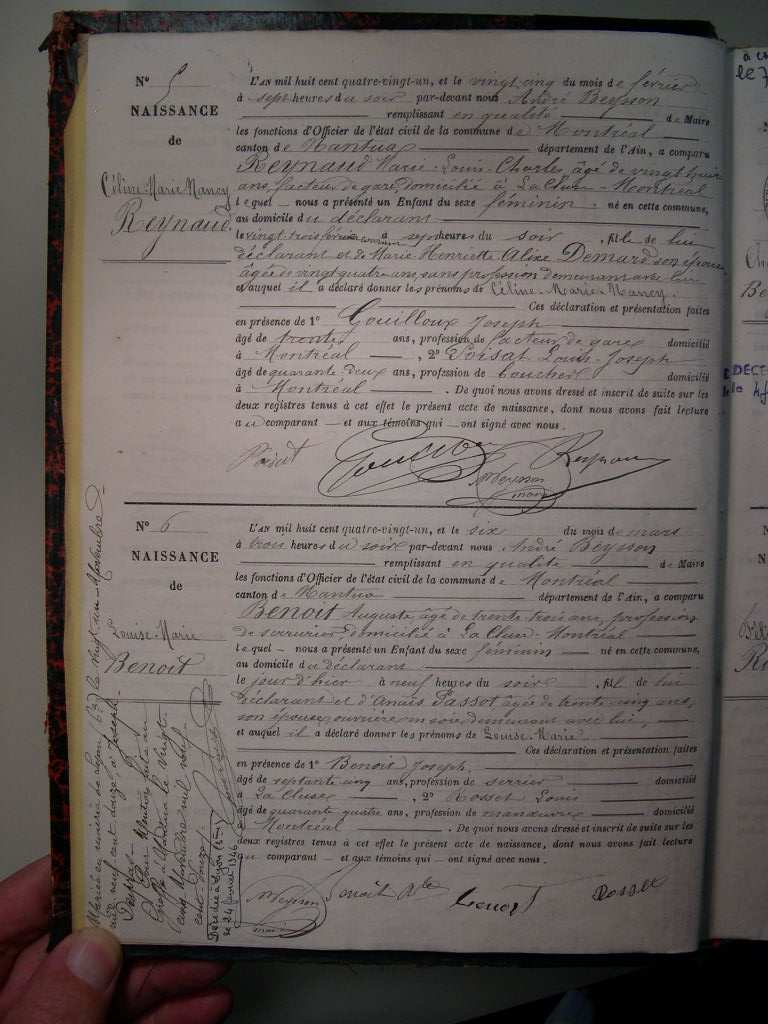 N° 5
NAISSANCE
de
Céline-Marie-Nancy
Reynaud
L'AN mil huit cent quatre-vingt-un, et le vingt cinq du mois de février
à sept heures du soir par-devant nous André Beysson
remplissant en qualité de Maire
les fonctions d'Officier de l'état civil de la commune de Montréal
canton de Nantua département de l'Ain, a comparu
Reynaud Marie-Louis-Charles, âgé de vingt huit
ans, facteur de gare, domicilié à La Cluse-Montréal
lequel nous a présenté un Enfant du sexe féminin né en cette commune,
au domicile du déclarant
le vingt trois février courant à sept heures du soir, fille de lui
déclarant et de Marie Henriette Alixe Demard son épouse
âgée de vingt quatre ans, sans profession demeurant avec lui
et auquel il a déclaré donner les prénoms de Céline-Marie-Nancy.
Ces déclaration et présentation faites
en présence de 1° Gouilloux Joseph
âgé de trente ans, profession de facteur de gare domicilié
à Montréal, 2° Poisat Louis-Joseph
âgé de quarante deux ans, profession de boucher domicilié
à Montréal. De quoi nous avons dressé et inscrit de suite sur les
deux registres tenus à cet effet le présent acte de naissance, dont nous avons fait lecture
au comparant et aux témoins qui ont signé avec nous.
Poisat Reynaud
Beysson
maire
N° 6
NAISSANCE
de
Louise-Marie
Benoit
L'AN mil huit cent quatre-vingt-un, et le six du mois de mars
à trois heures du soir par-devant nous André Beysson
remplissant en qualité de Maire
les fonctions d'Officier de l'état civil de la commune de Montréal
canton de Nantua département de l'Ain, a comparu
Benoit Auguste âgé de trente trois ans, profession
de serrurier, domicilié à La Cluse-Montréal
lequel nous a présenté un Enfant du sexe féminin né en cette commune,
au domicile du déclarant
le jour d'hier à neuf heures du soir, fille de lui
déclarant et d'Anaïs Passot âgée de trente cinq ans,
son épouse, ouvrière en soie demeurant avec lui,
et auquel il a déclaré donner les prénoms de Louise-Marie
Ces déclaration et présentation faites
en présence de 1° Benoit Joseph,
âgé de septante cinq ans, profession de serrurier domicilié
à La Cluse, 2° Rosset Louis
âgé de quarante quatre ans, profession de manœuvre domicilié
à Montréal. De quoi nous avons dressé et inscrit de suite sur les
deux registres tenus à cet effet le présent acte de naissance, dont nous avons fait lecture
au comparant et aux témoins qui ont signé avec nous.
Beysson Benoit Benoit Rosset
maire
Mariée en mairie de Lyon (6e) le vingt-un Novembre
mil neuf cent douze, à Joseph
Pour Mention faite au
Greffe à Nantua le vingt
cinq Novembre mil neuf
cent douze.
Décédée à Lyon
le 24 février 1946